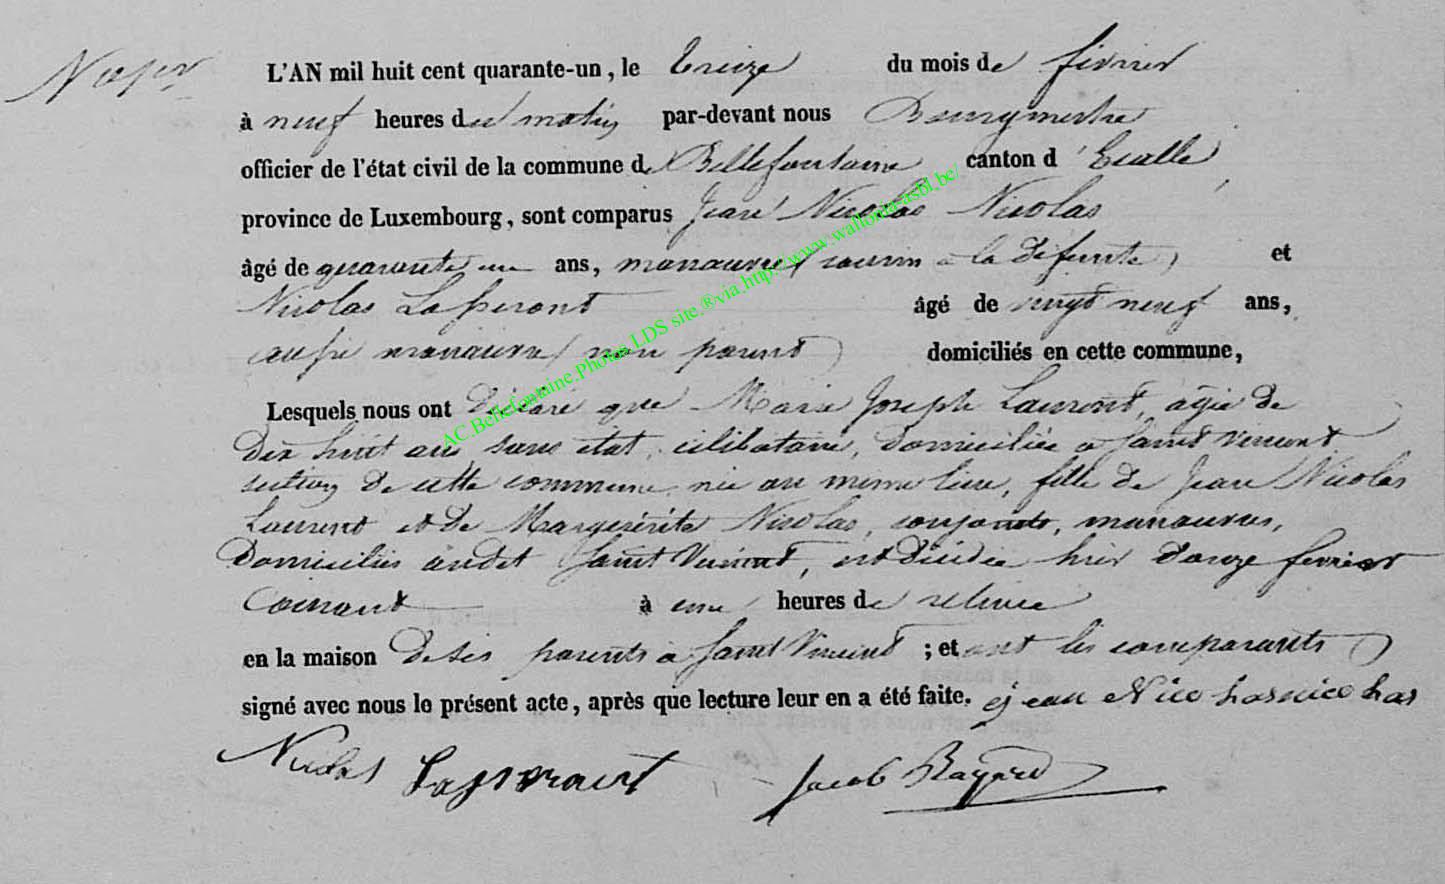 L'AN mil huit cent quarante-un, le treize du mois de février
à neuf heures du matin par-devant nous Bourgmestre
officier de l'état civil de la commune de Bellefontaine canton d'Etalle
province de Luxembourg, sont comparus Jean Nicolas Nicolas
âgé de quarante un ans, manœuvre, cousin à la défunte, et
Nicolas Lasseront âgé de vingt neuf ans,
aussi manœuvre, non parent, domiciliés en cette commune,
Lesquels nous ont déclaré que Marie Joseph Laurent, agée de
dix huit ans sans état, célibataire, domiciliée à Saint Vincent
section de cette commune, née au même lieu, fille de Jean Nicolas
Laurent et de Margueritte Nicolas, conjoints, manœuvres,
domiciliés audit Saint Vincent, est décédée hier douze fevrier
courant à une heures de relevée
en la maison de ses parents à Saint Vincent ; et ont les comparants
signé avec nous le présent acte, après que lecture leur en a été faite. jean Nico lasnico las
Nicolas Lasseront Jacob
AC.Bellefontaine.Photos LDS site.®via http://www.wallonia-asbl.be/